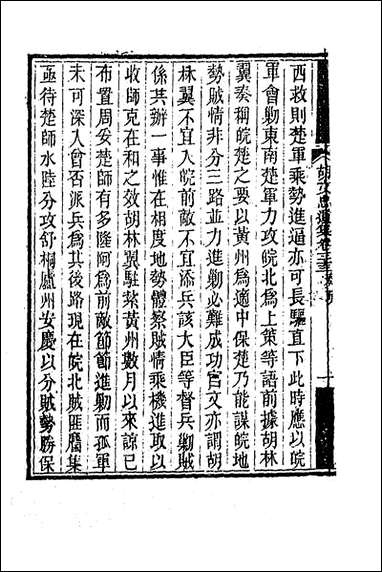 西救則楚軍乘勢進逼亦可長驅直下此時應以皖
軍會剿東南楚軍力攻皖北為上策等語前據胡林
翼奏稱皖楚之要以黃州為適中保楚乃能謀皖地
勢賊情非分三路並力進剿必難成功官文亦謂胡
林翼不宜入皖前敵不宜添兵該大臣等督兵剿賊
係共辦一事惟在相度地勢體察賊情乘機進取以
收師克在和之效胡林翼駐紮黃州數月以來諒已
布置周妥楚師有多隆阿為前敵節節進剿而孤軍
未可深入曾否派兵為其後路現在皖北賊匪屬集
亟待楚師水陸分攻舒桐廬州安慶以分賊勢勝保
胡文忠遺集卷三